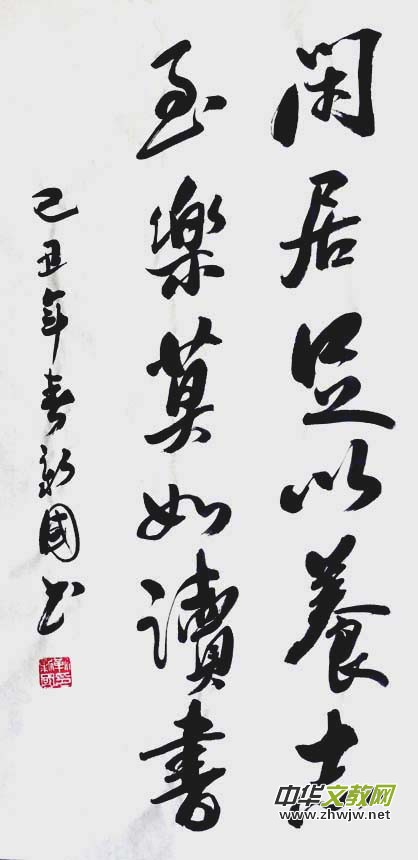 閑居足以養志
至樂莫如讀書
己丑年春新國书
中华文教网
www.zhwjw.net